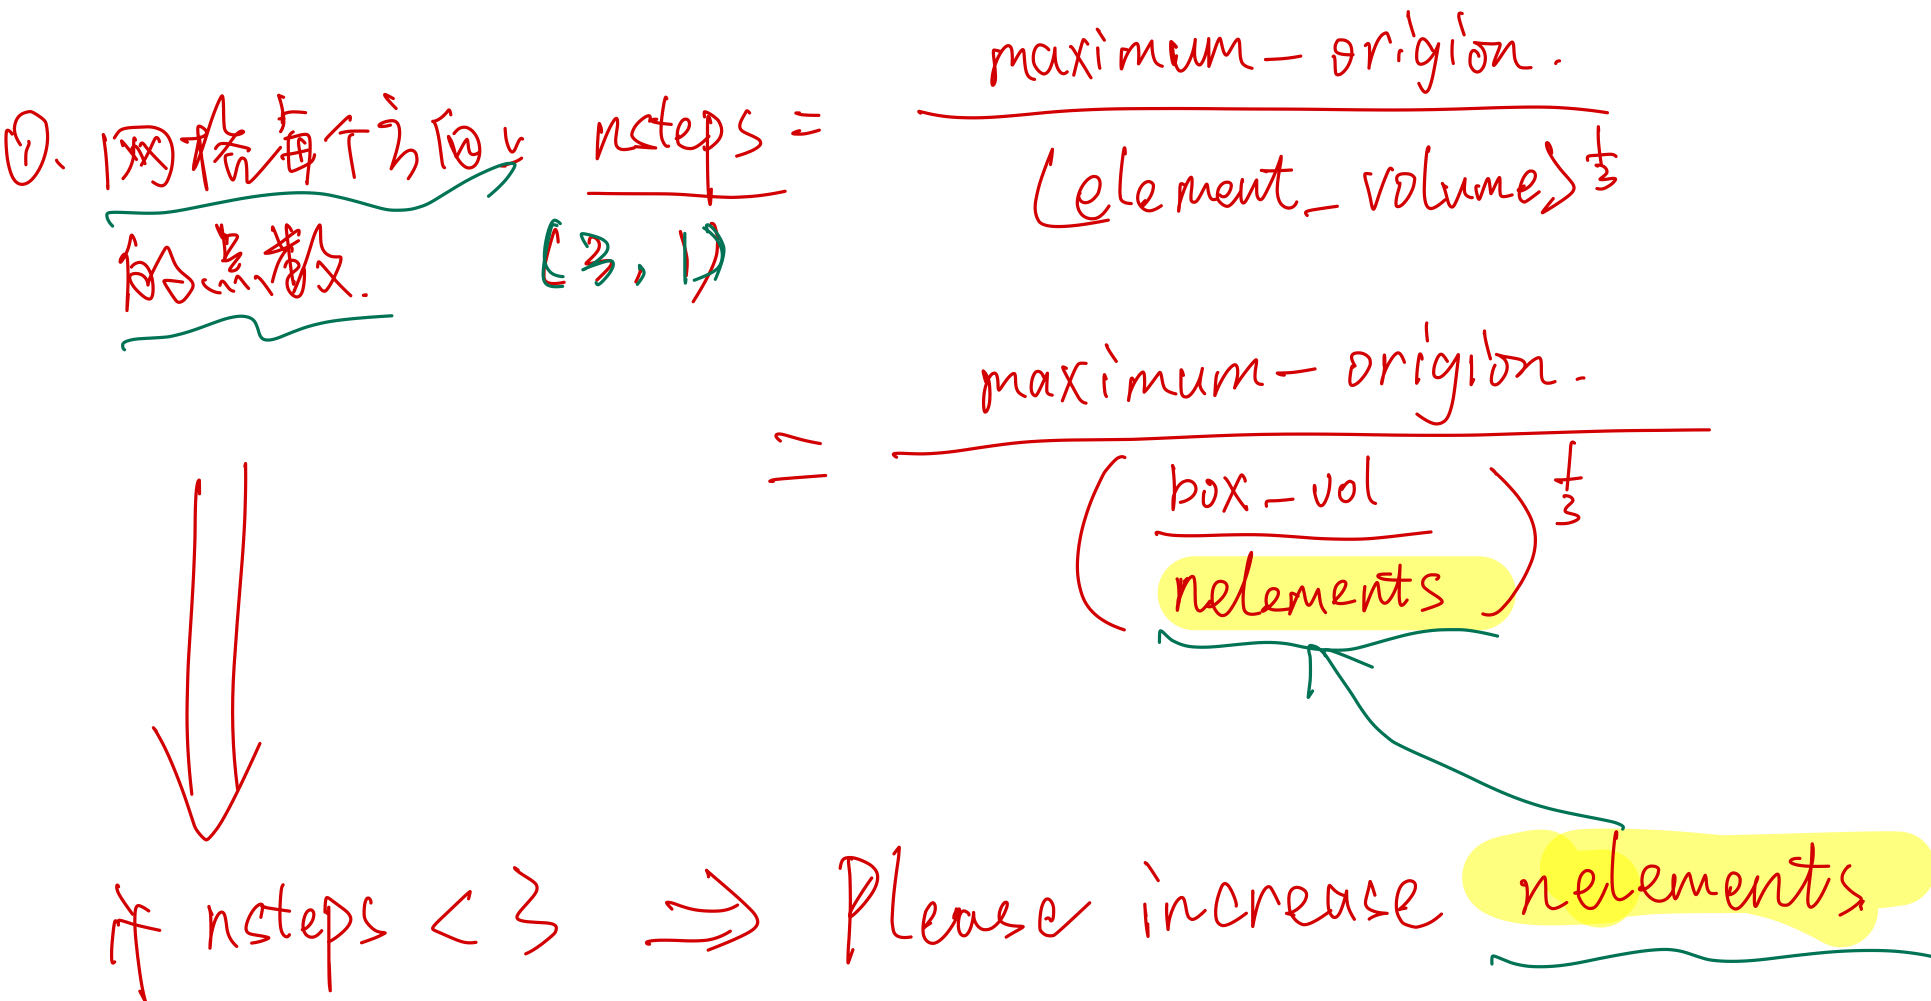 ①. 网格每个方向上 nsteps = maximum - origion.
(element_volume)^1/3
的点数. (3, 1)
= maximum - origion.
(box_vol
nelements)^1/3
if nsteps < 3 ⇒ Please increase nelements